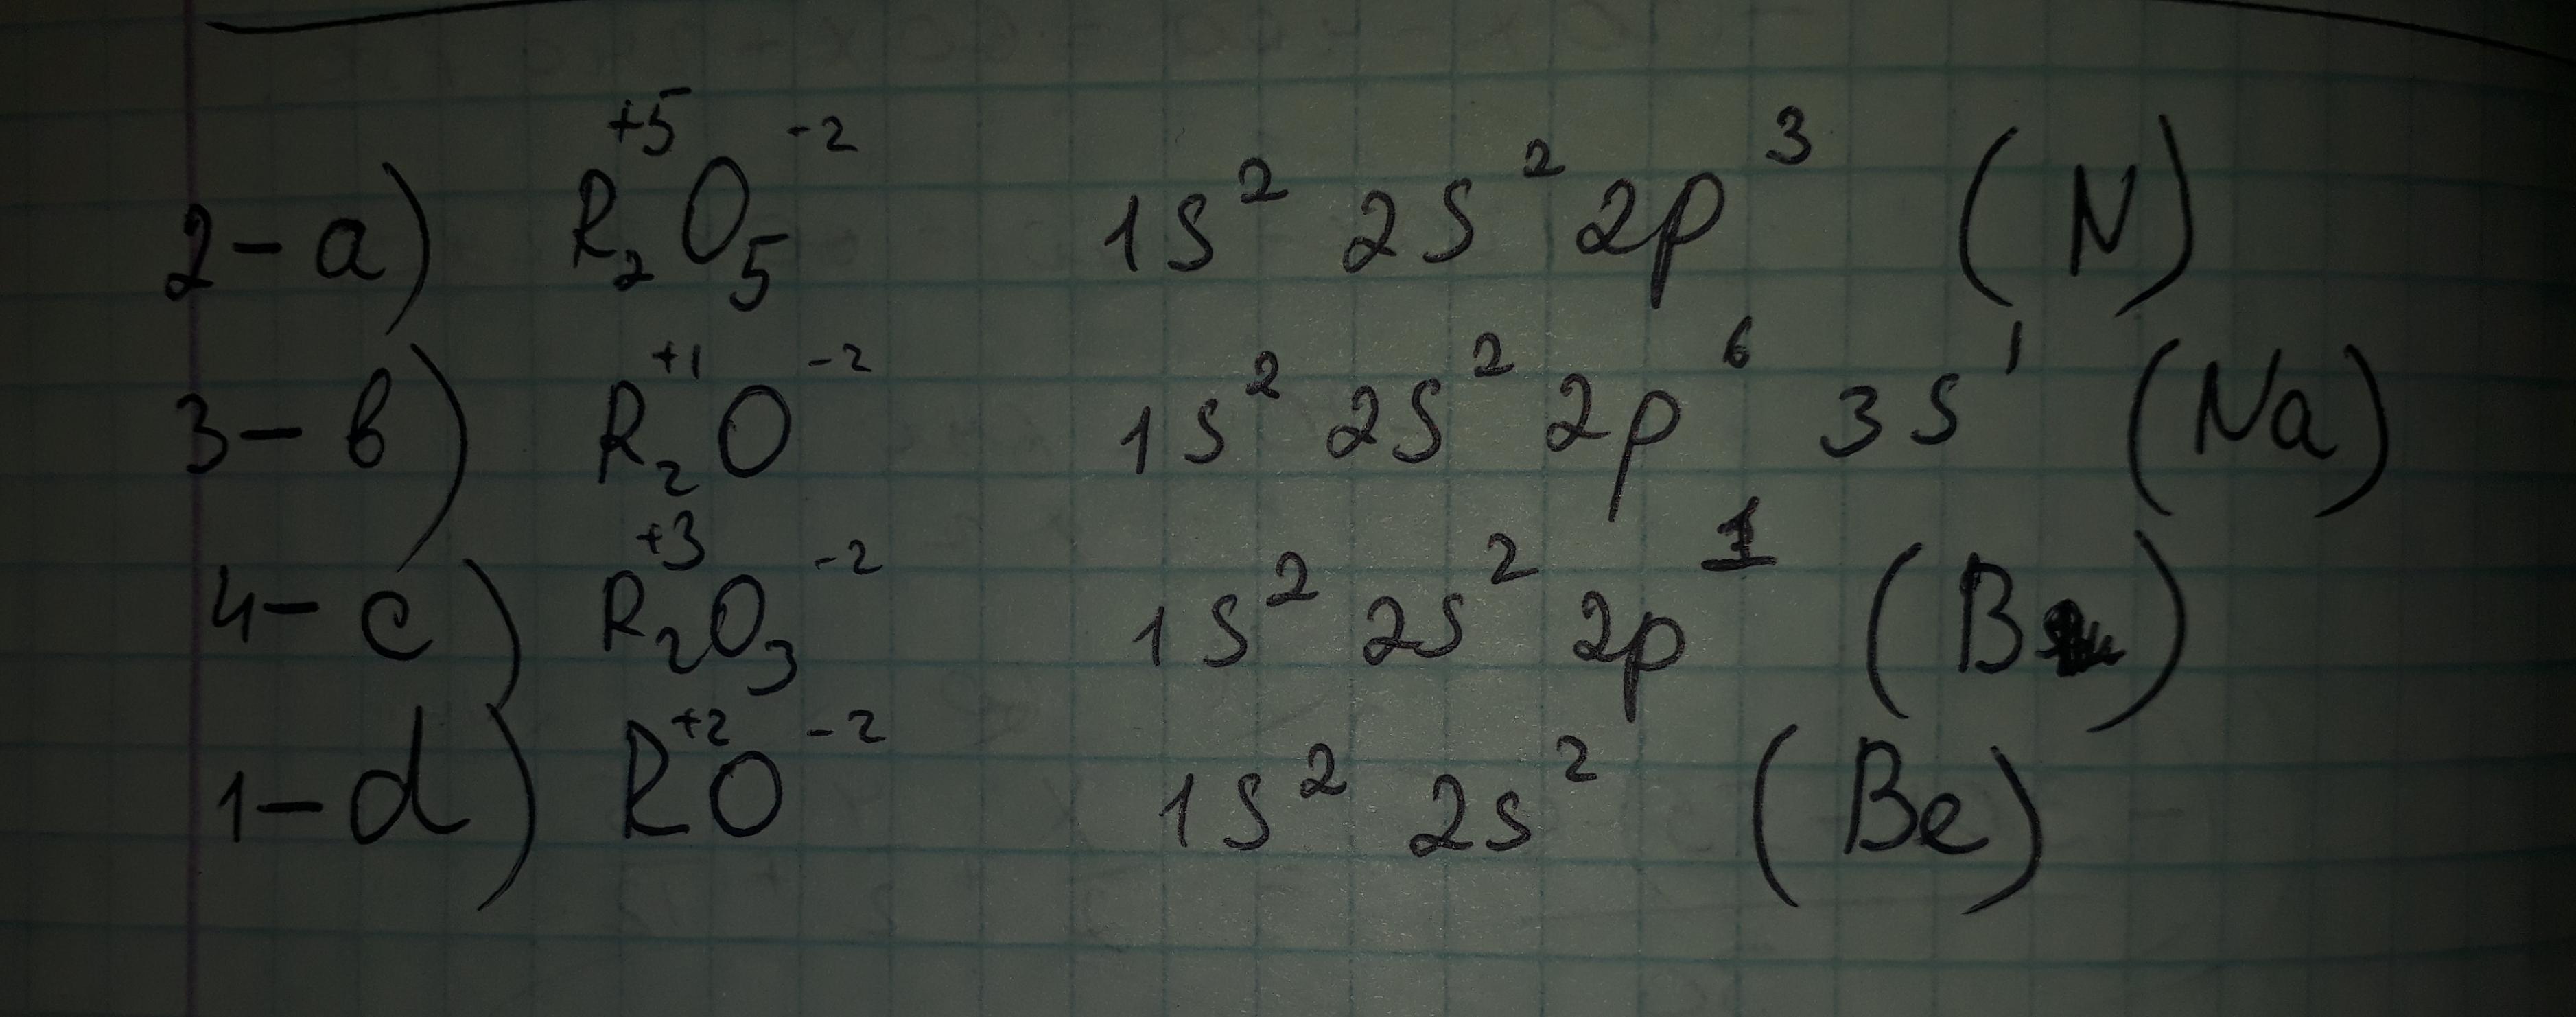 2 - a) R₂⁺⁵O₅⁻² 1s² 2s² 2p³ (N)
3 - b) R₂⁺¹O⁻² 1s² 2s² 2p⁶ 3s¹ (Na)
4 - c) R₂⁺³O₃⁻² 1s² 2s² 2p¹ (B)
1 - d) R⁺²O⁻² 1s² 2s² (Be)